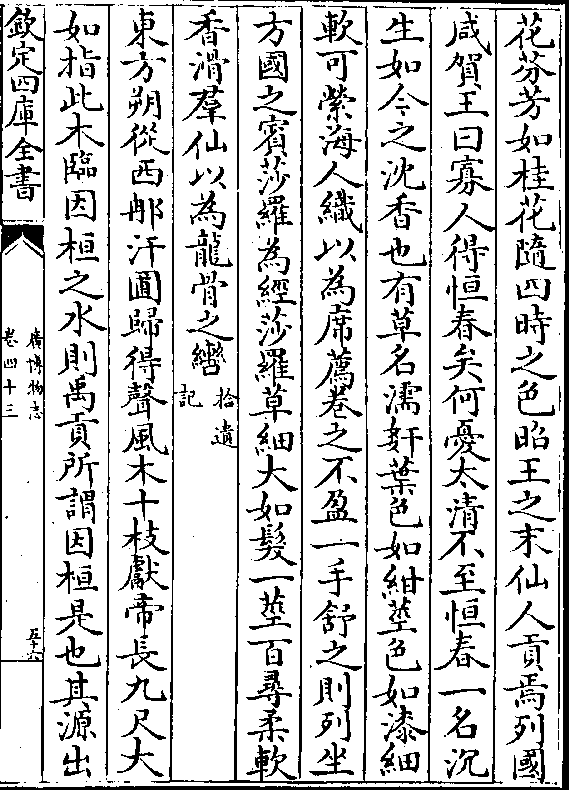 花芬芳如桂花隨四時之色昭王之末仙人貢焉列國
咸賀王曰寡人得恒春矣何憂太清不至恒春一名沉
生如今之沈香也有草名濡奸葉色如紺莖色如漆細
軟可縈海人織以為席薦卷之不盈一手舒之則列坐
方國之賓莎羅為經莎羅草細大如髮一莖百尋柔軟
香滑羣仙以為龍骨之轡拾遺
記
東方朔從西那汗國歸得聲風木十枝獻帝長九尺大
如指此木臨因桓之水則禹貢所謂因桓是也其源出
欽定四庫全書
廣博物志
卷四十三
五十六